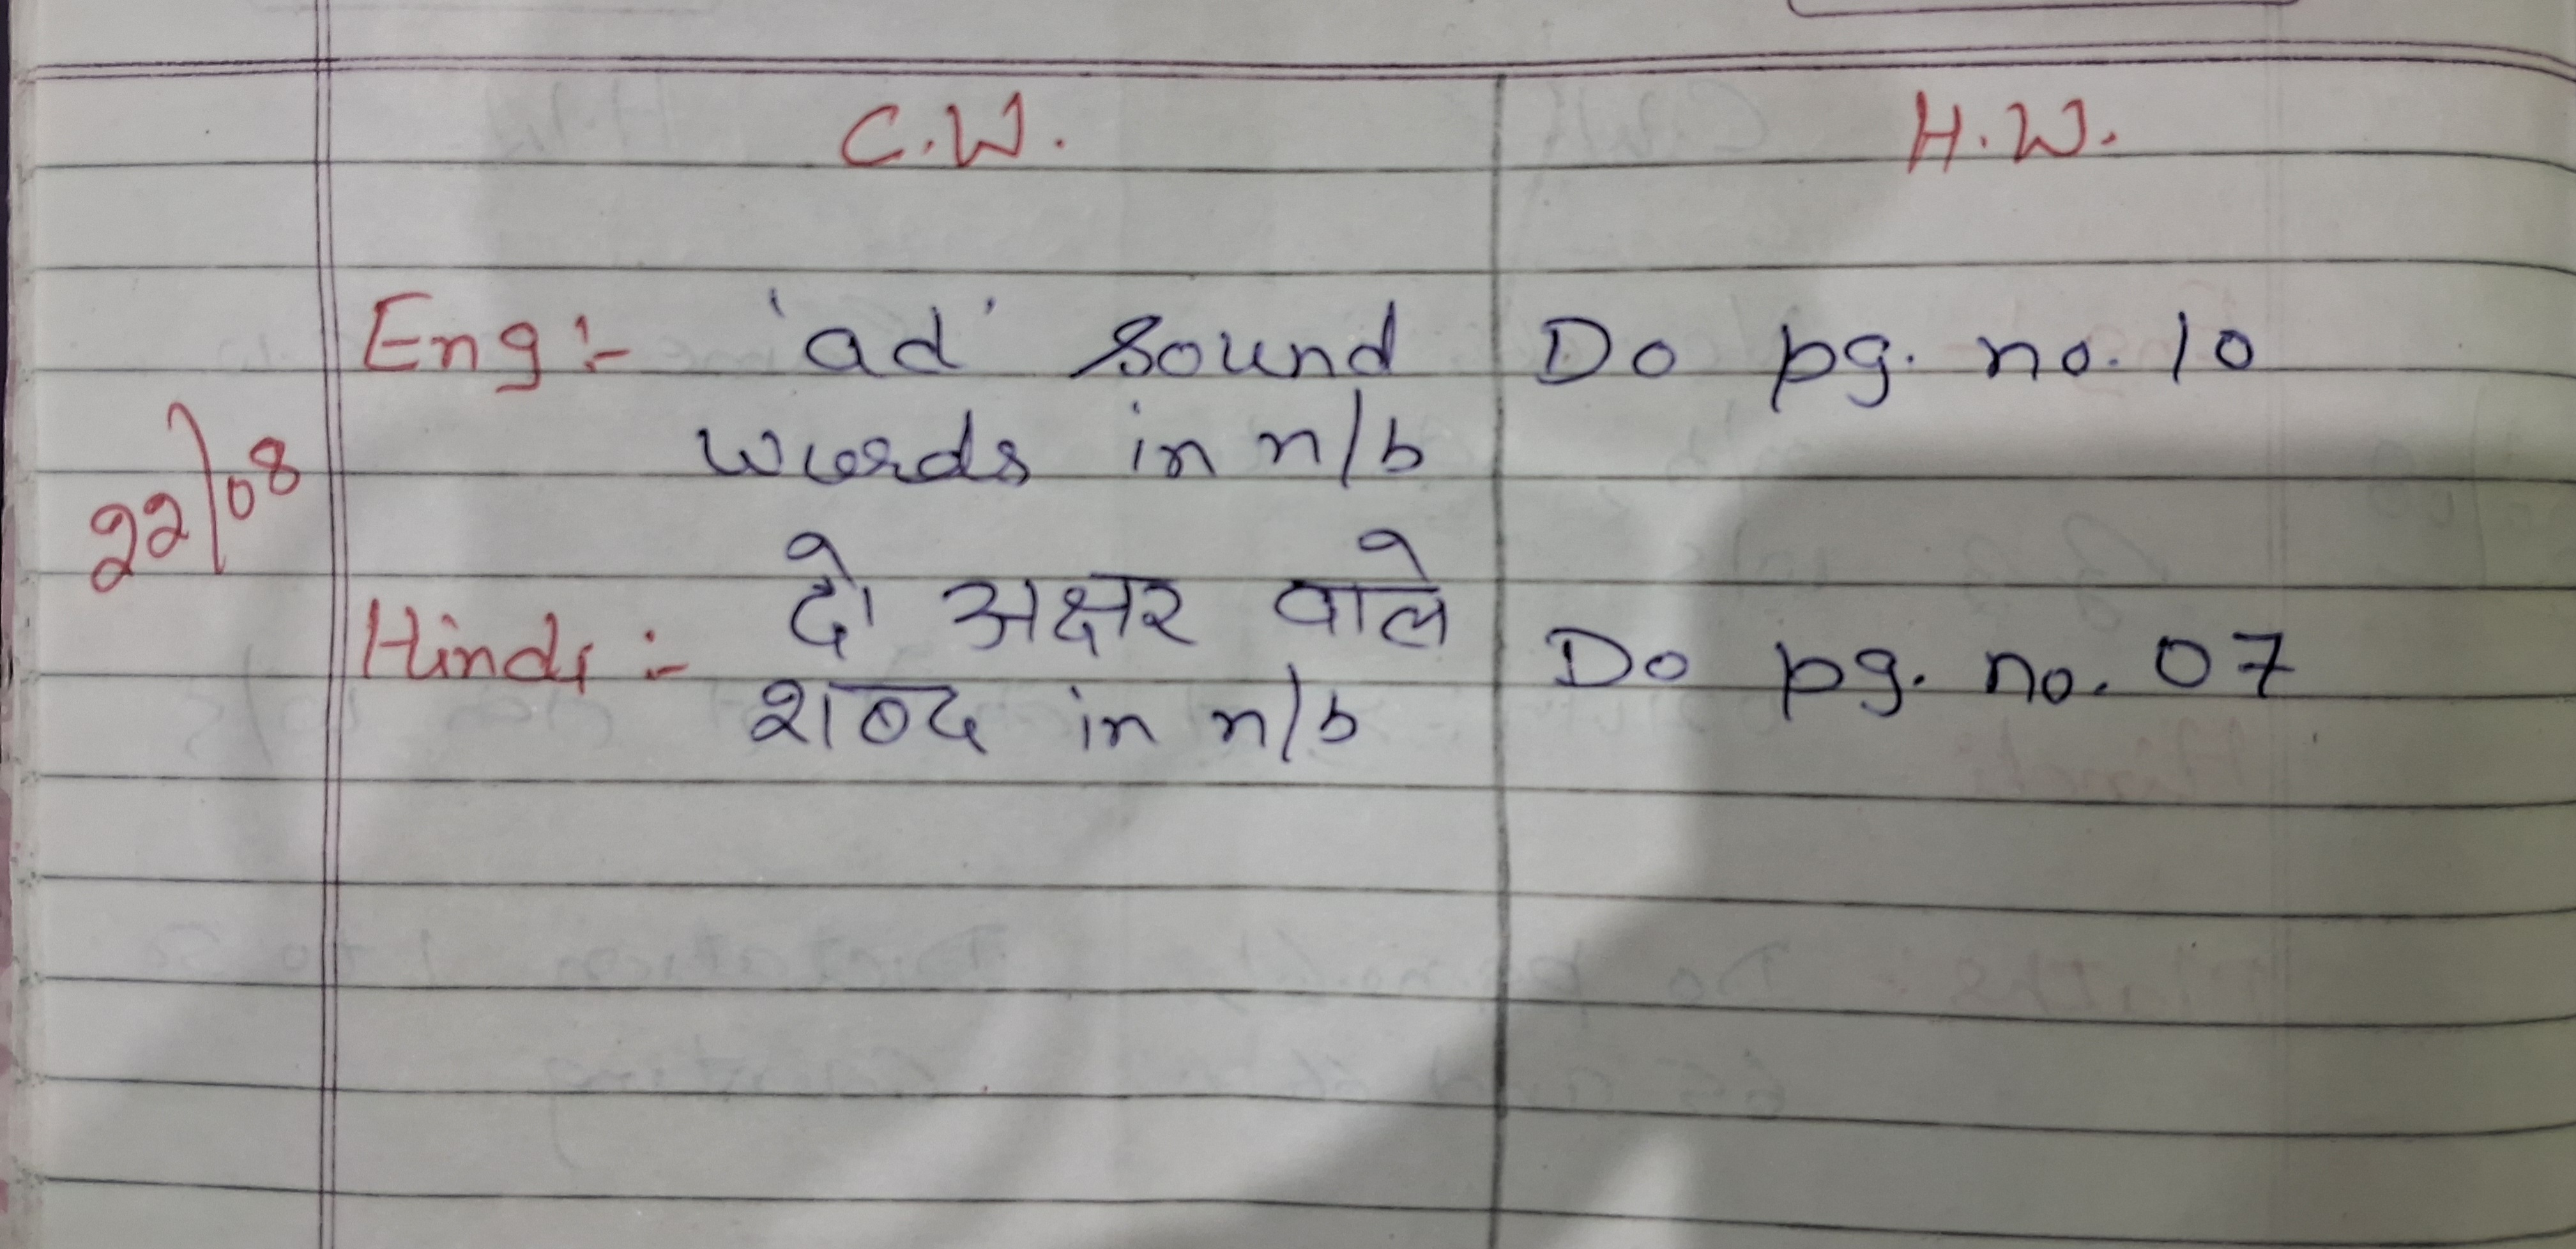 C.W. H.W.
Eng :- 'ad' sound Do pg. no. 10
words in n/b
22/08
दो अक्षर वाले
Hindi :- Do pg. no. 07
शब्द in n/b